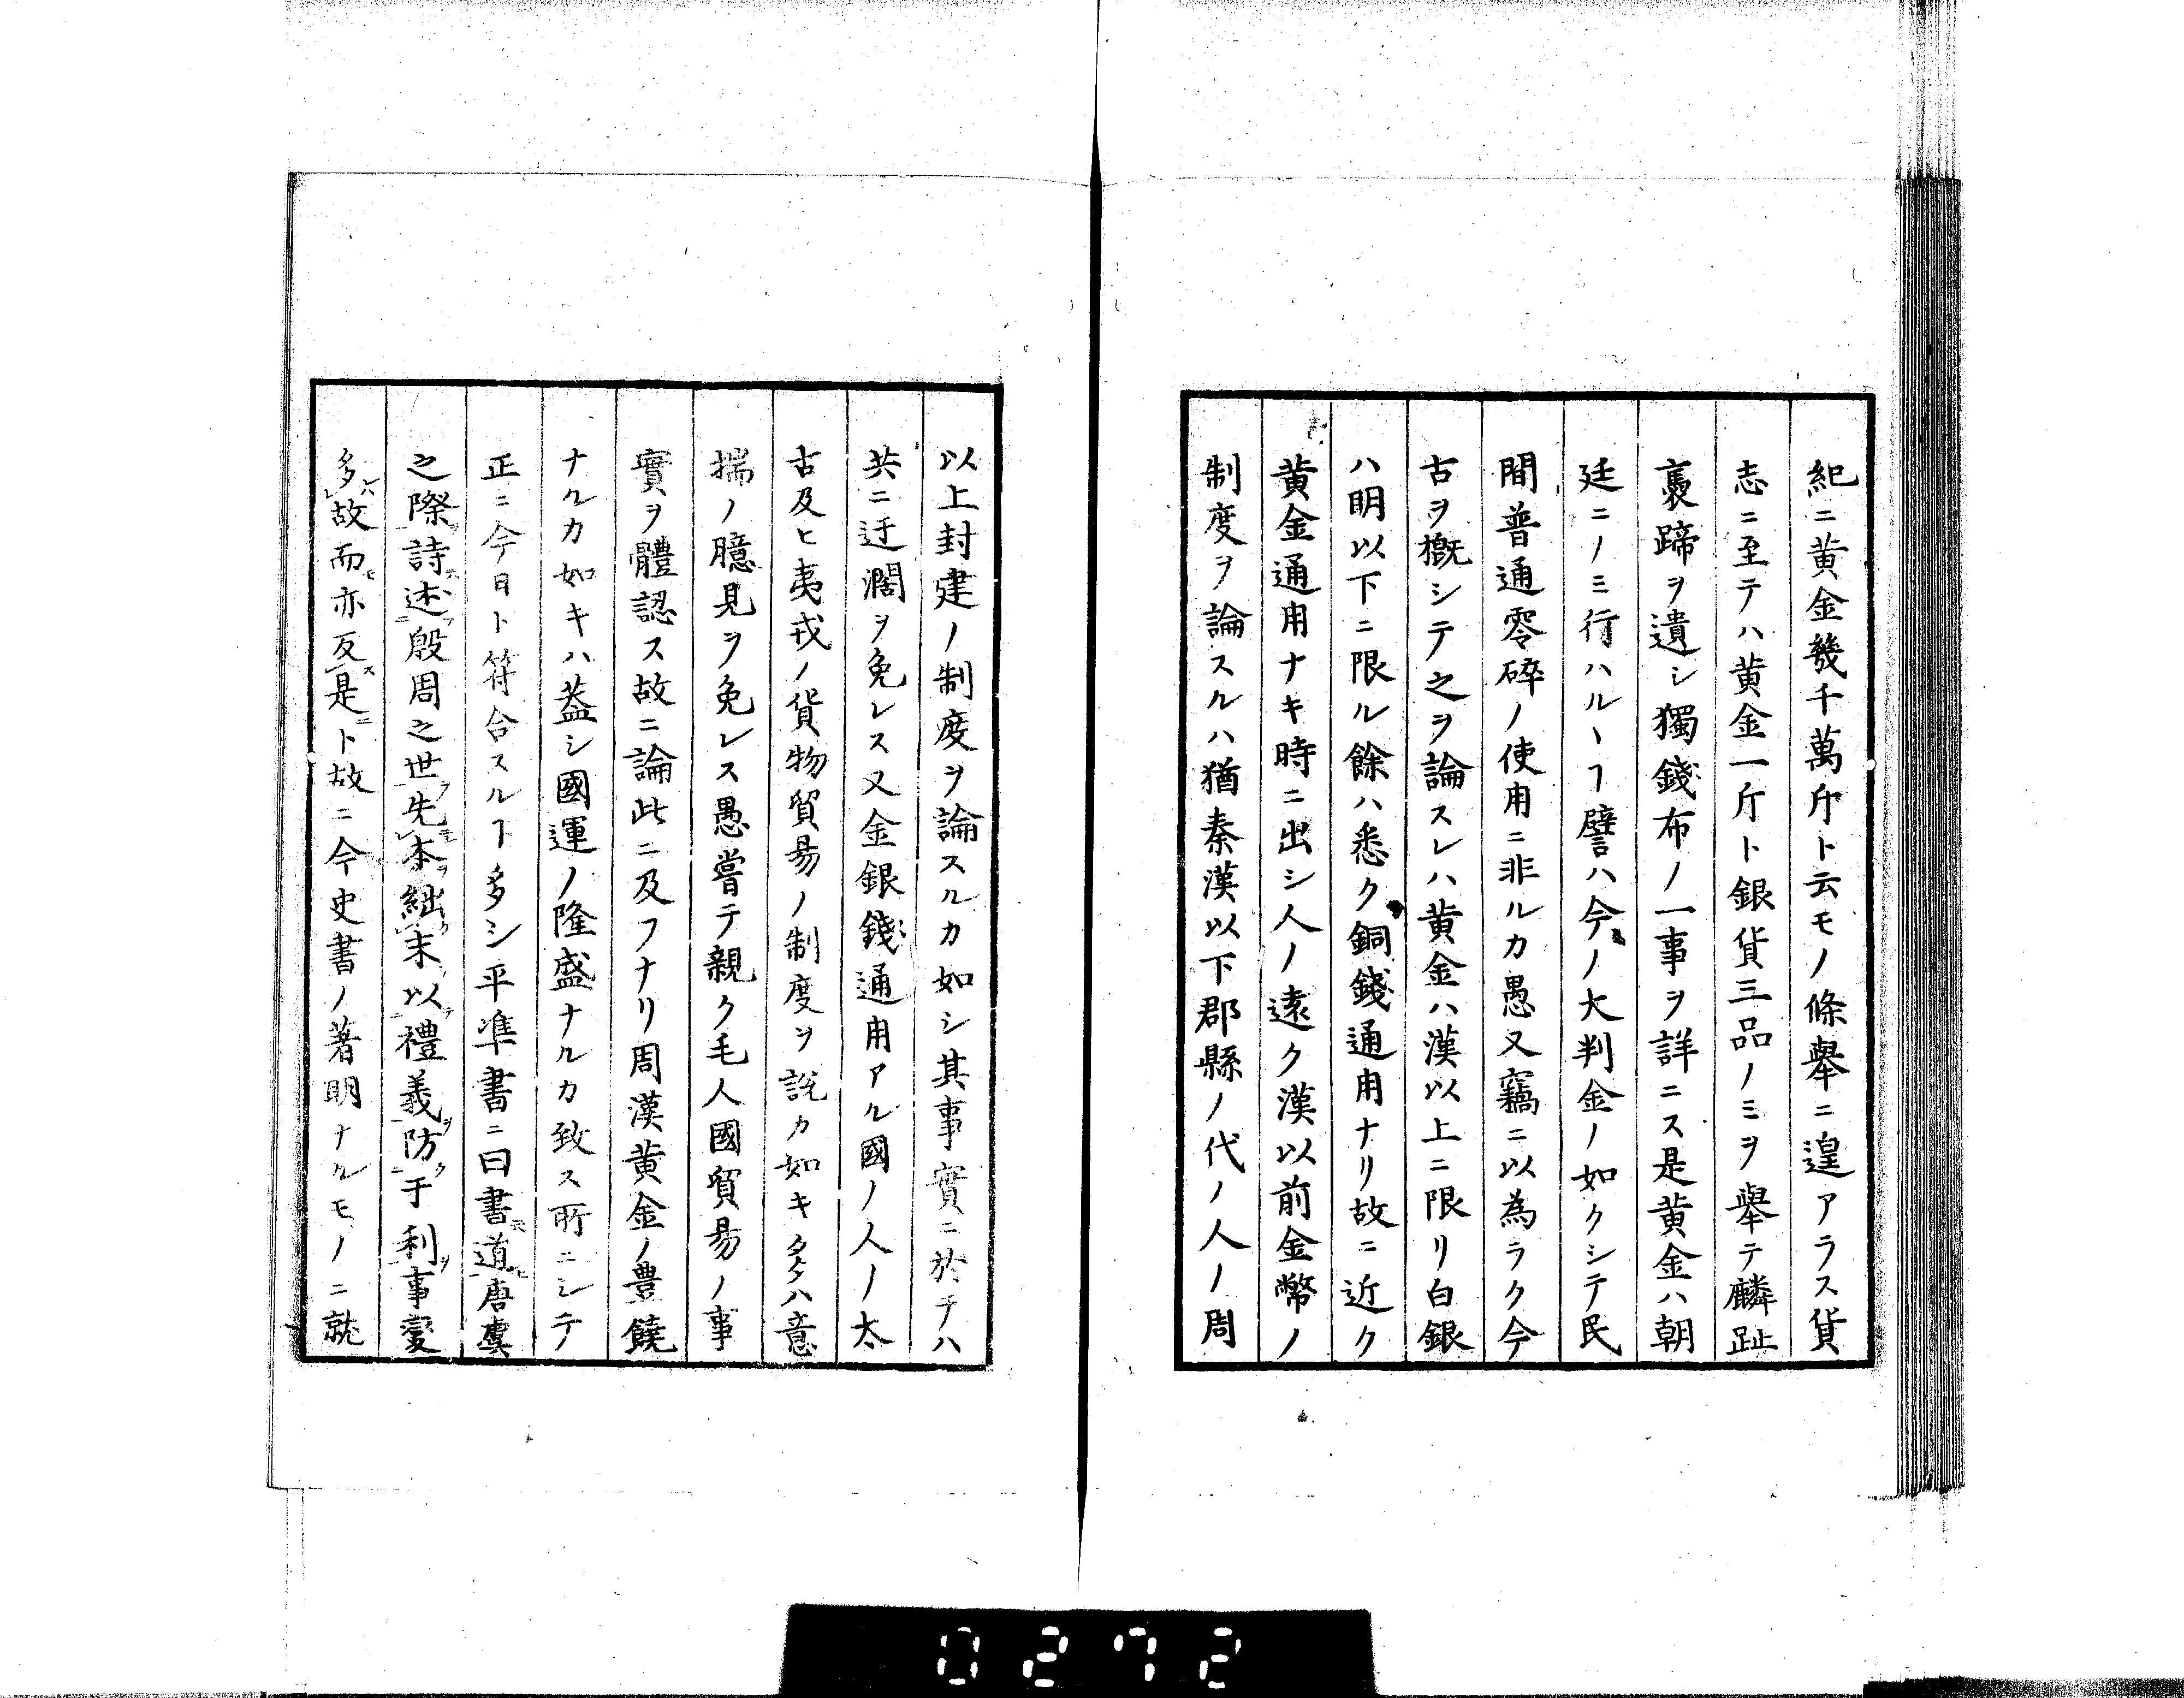 紀ニ黄金幾千萬斤ト云モノ條舉ニ遑アラス貨
志ニ至テハ黄金一斤ト銀貨三品ノミヲ舉テ麟趾
褭蹄ヲ遺シ獨錢布ノ一事ヲ詳ニス是黄金ハ朝
廷ニノミ行ハルヽヿ譬ハ今ノ大判金ノ如クシテ民
間普通零碎ノ使用ニ非ルカ愚又竊ニ以為ラク今
古ヲ概シテ之ヲ論スレハ黄金ハ漢以上ニ限リ白銀
ハ明以下ニ限ル餘ハ悉ク銅錢通用ナリ故ニ近ク
黄金通用ナキ時ニ出シ人ノ遠ク漢以前金幣ノ
制度ヲ論スルハ猶秦漢以下郡縣ノ代ノ人ノ周
以上封建ノ制度ヲ論スルカ如シ其事實ニ於テハ
共ニ迂濶ヲ免レス又金銀錢通用アル國ノ人ノ太
古及ヒ夷戎ノ貨物貿易ノ制度ヲ説カ如キ多ハ意
揣ノ臆見ヲ免レス愚嘗テ親ク毛人國貿易ノ事
實ヲ體認ス故ニ論此ニ及フナリ周漢黄金ノ豊饒
ナルカ如キハ葢シ國運ノ隆盛ナルカ致ス所ニシテ
正ニ今日ト符合スルヿ多シ平準書ニ曰書道唐虞
之際詩述殷周之世先本絀末以禮義防于利事變
多故而亦反是ト故ニ今史書ノ著明ナルモノニ就
0272